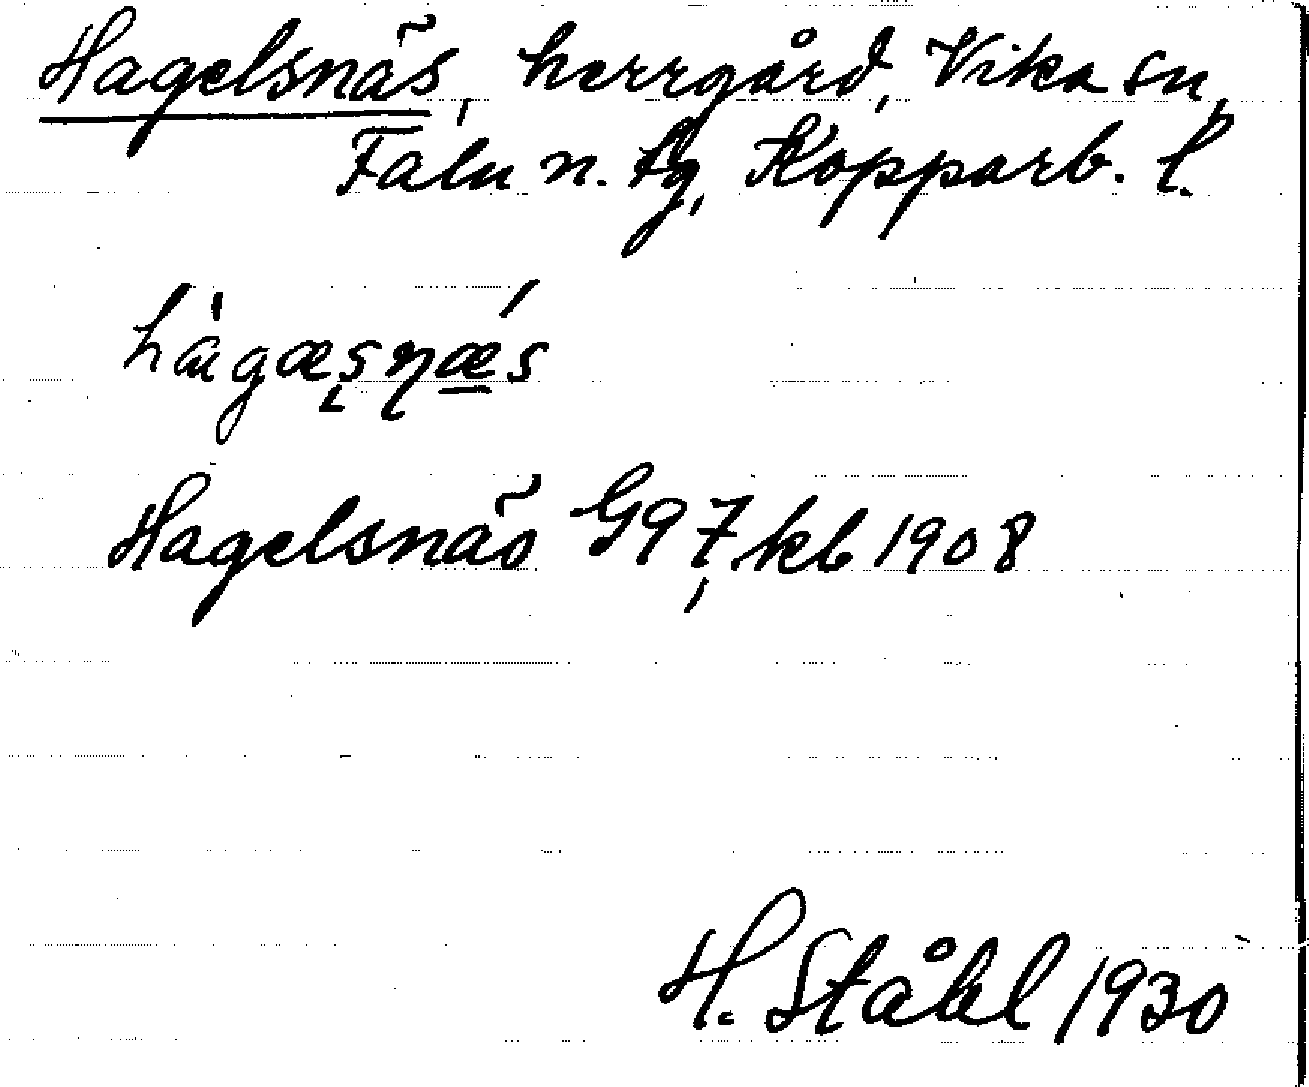 Hagelsnäs, herrgård, Vika sn,
Falu n. tg, Kopparb. l.
Hagelsnäs G97, kb 1908
H. Ståhl 1930